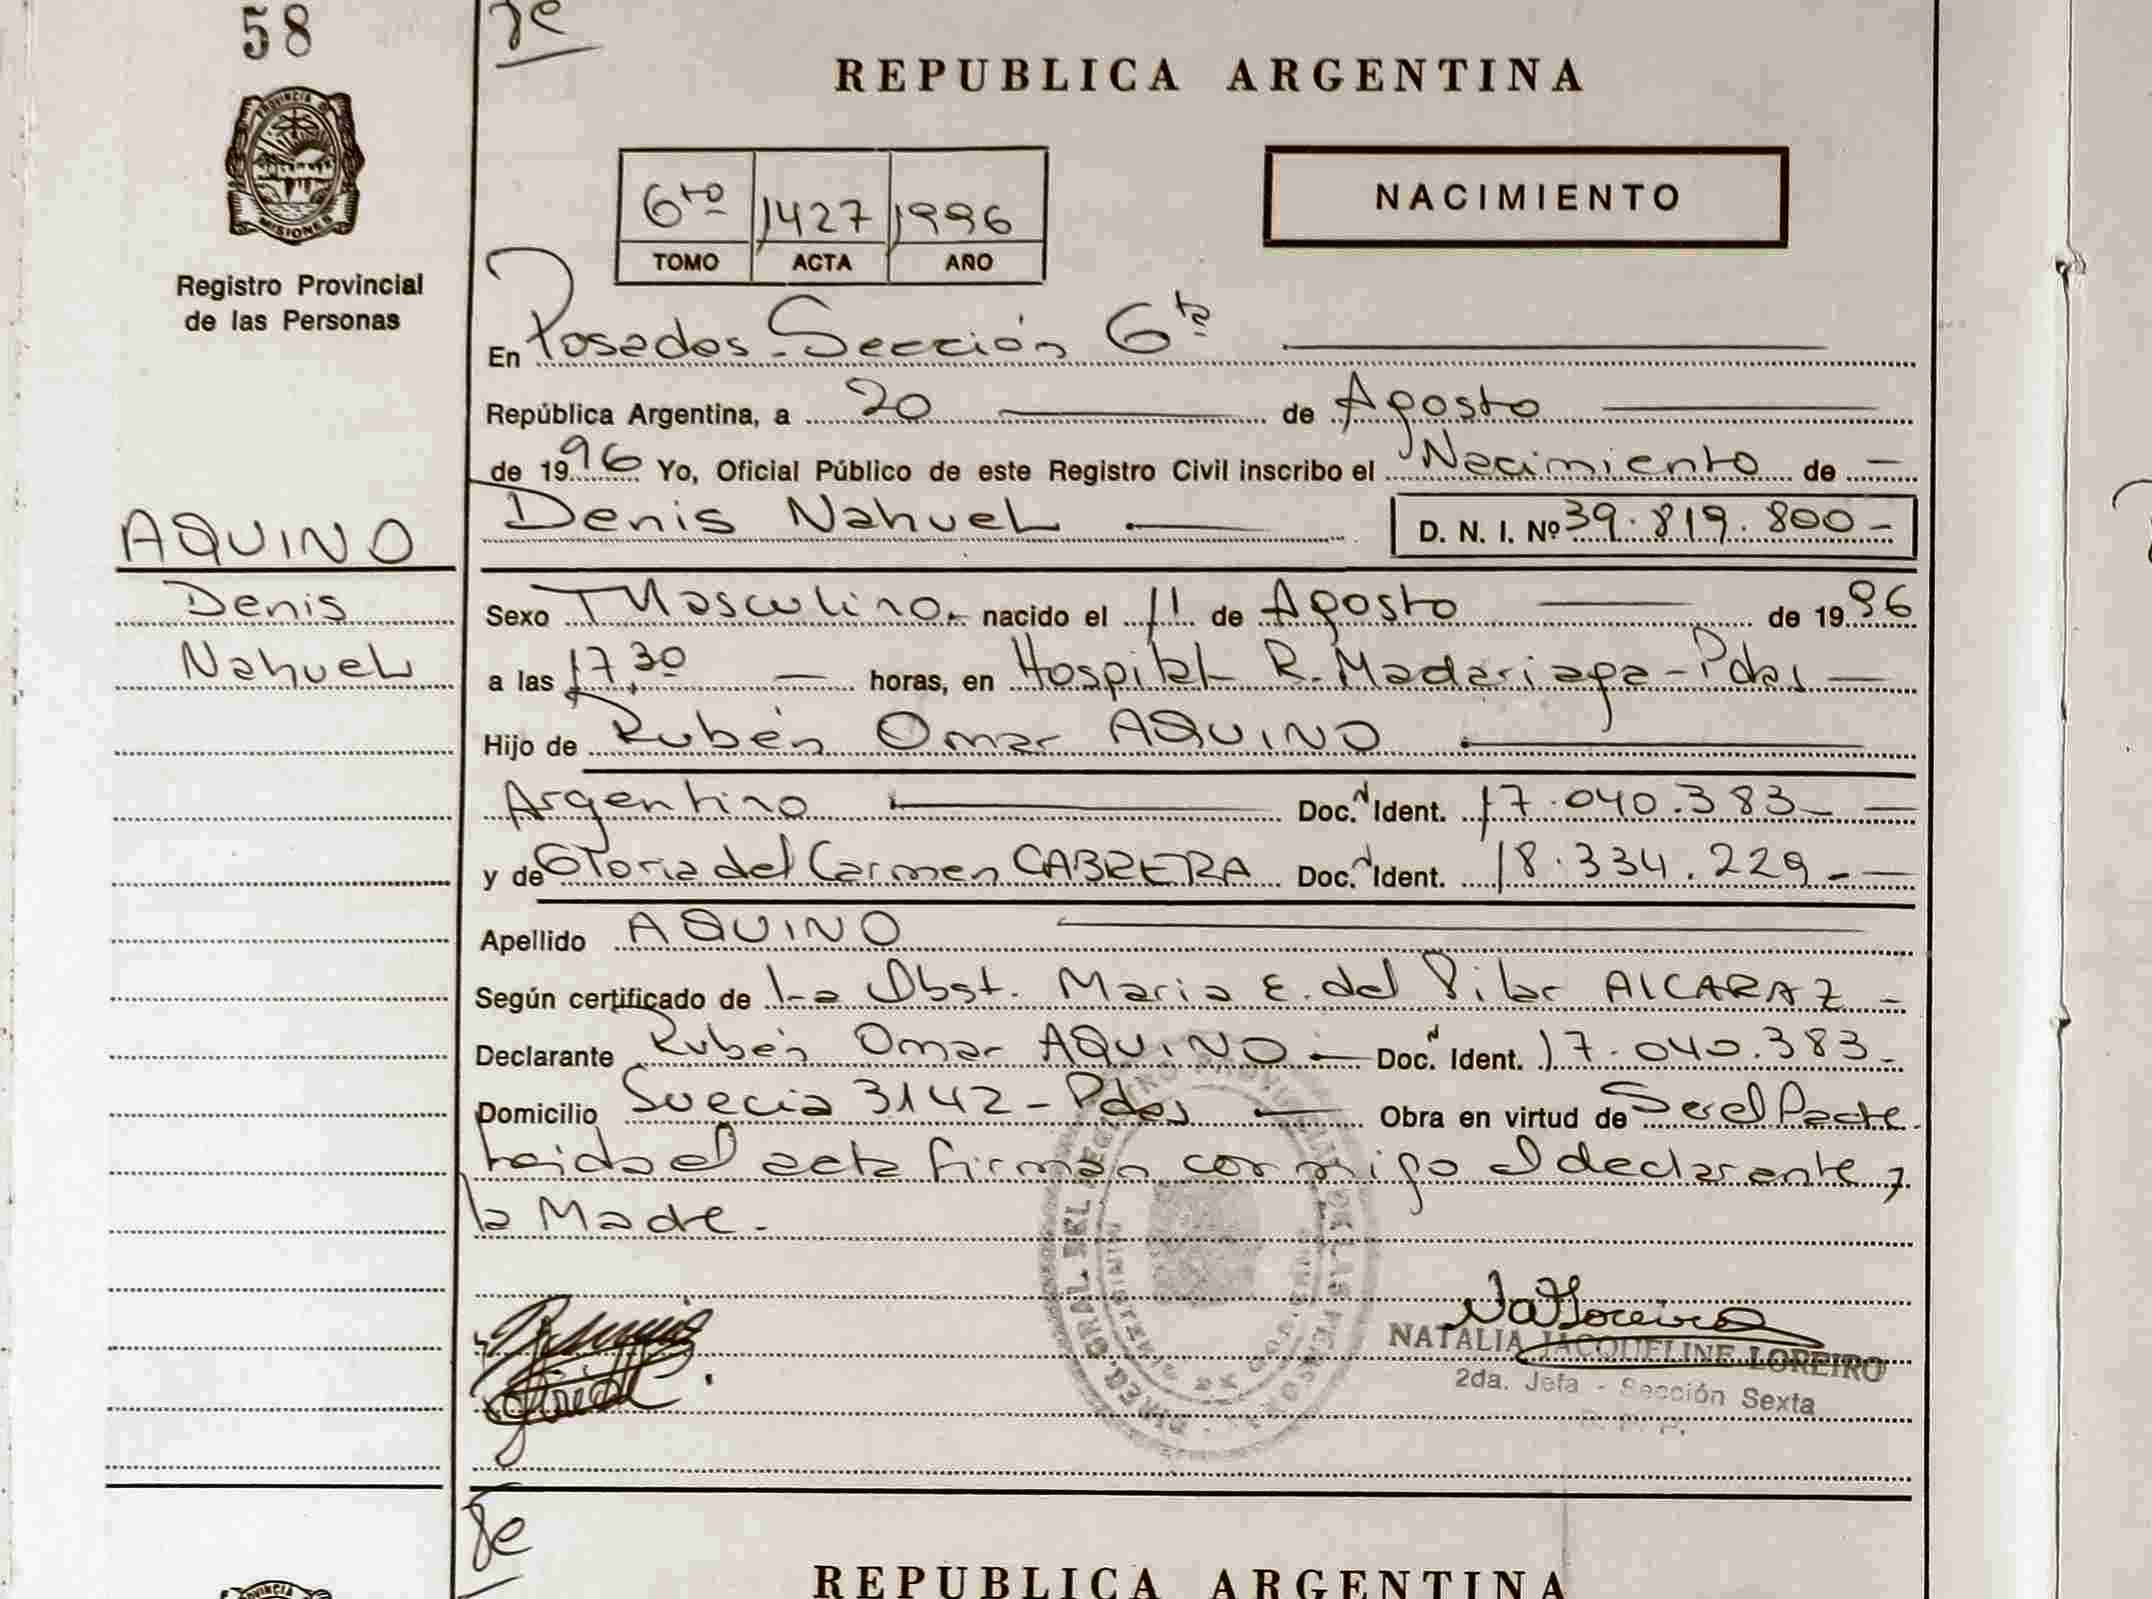 58
REPUBLICA ARGENTINA
PROVINCIA DE
MISIONES
Registro Provincial
de las Personas
6to 1427 1996
TOMO ACTA AÑO
NACIMIENTO
En Posadas - Sección 6ta
República Argentina, a 20 de Agosto
de 1996 Yo, Oficial Público de este Registro Civil inscribo el Nacimiento de
Denis Nahuel D. N. I. Nº 39.819.800-
AQUINO
Denis
Nahuel
Sexo Masculino. nacido el 11 de Agosto de 1996
a las 17,30 horas, en Hospital R. Madariaga - Pdas
Hijo de Rubén Omar AQUINO
Argentino Doc. Ident. 17.040.383-
y de Gloria del Carmen CABRERA Doc. Ident. 18.334.229-
Apellido AQUINO
Según certificado de La Obst. Maria E. del Pilar ALCARAZ
Declarante Rubén Omar AQUINO Doc. Ident. 17.040.383-
Domicilio Suecia 3142 - Pdas Obra en virtud de Ser el Padre.
Leida el acta firman conmigo el declarante y
la Madre.
NATALIA JACQUELINE LOREIRO
2da. Jefa - Sección Sexta
REPUBLICA ARGENTINA